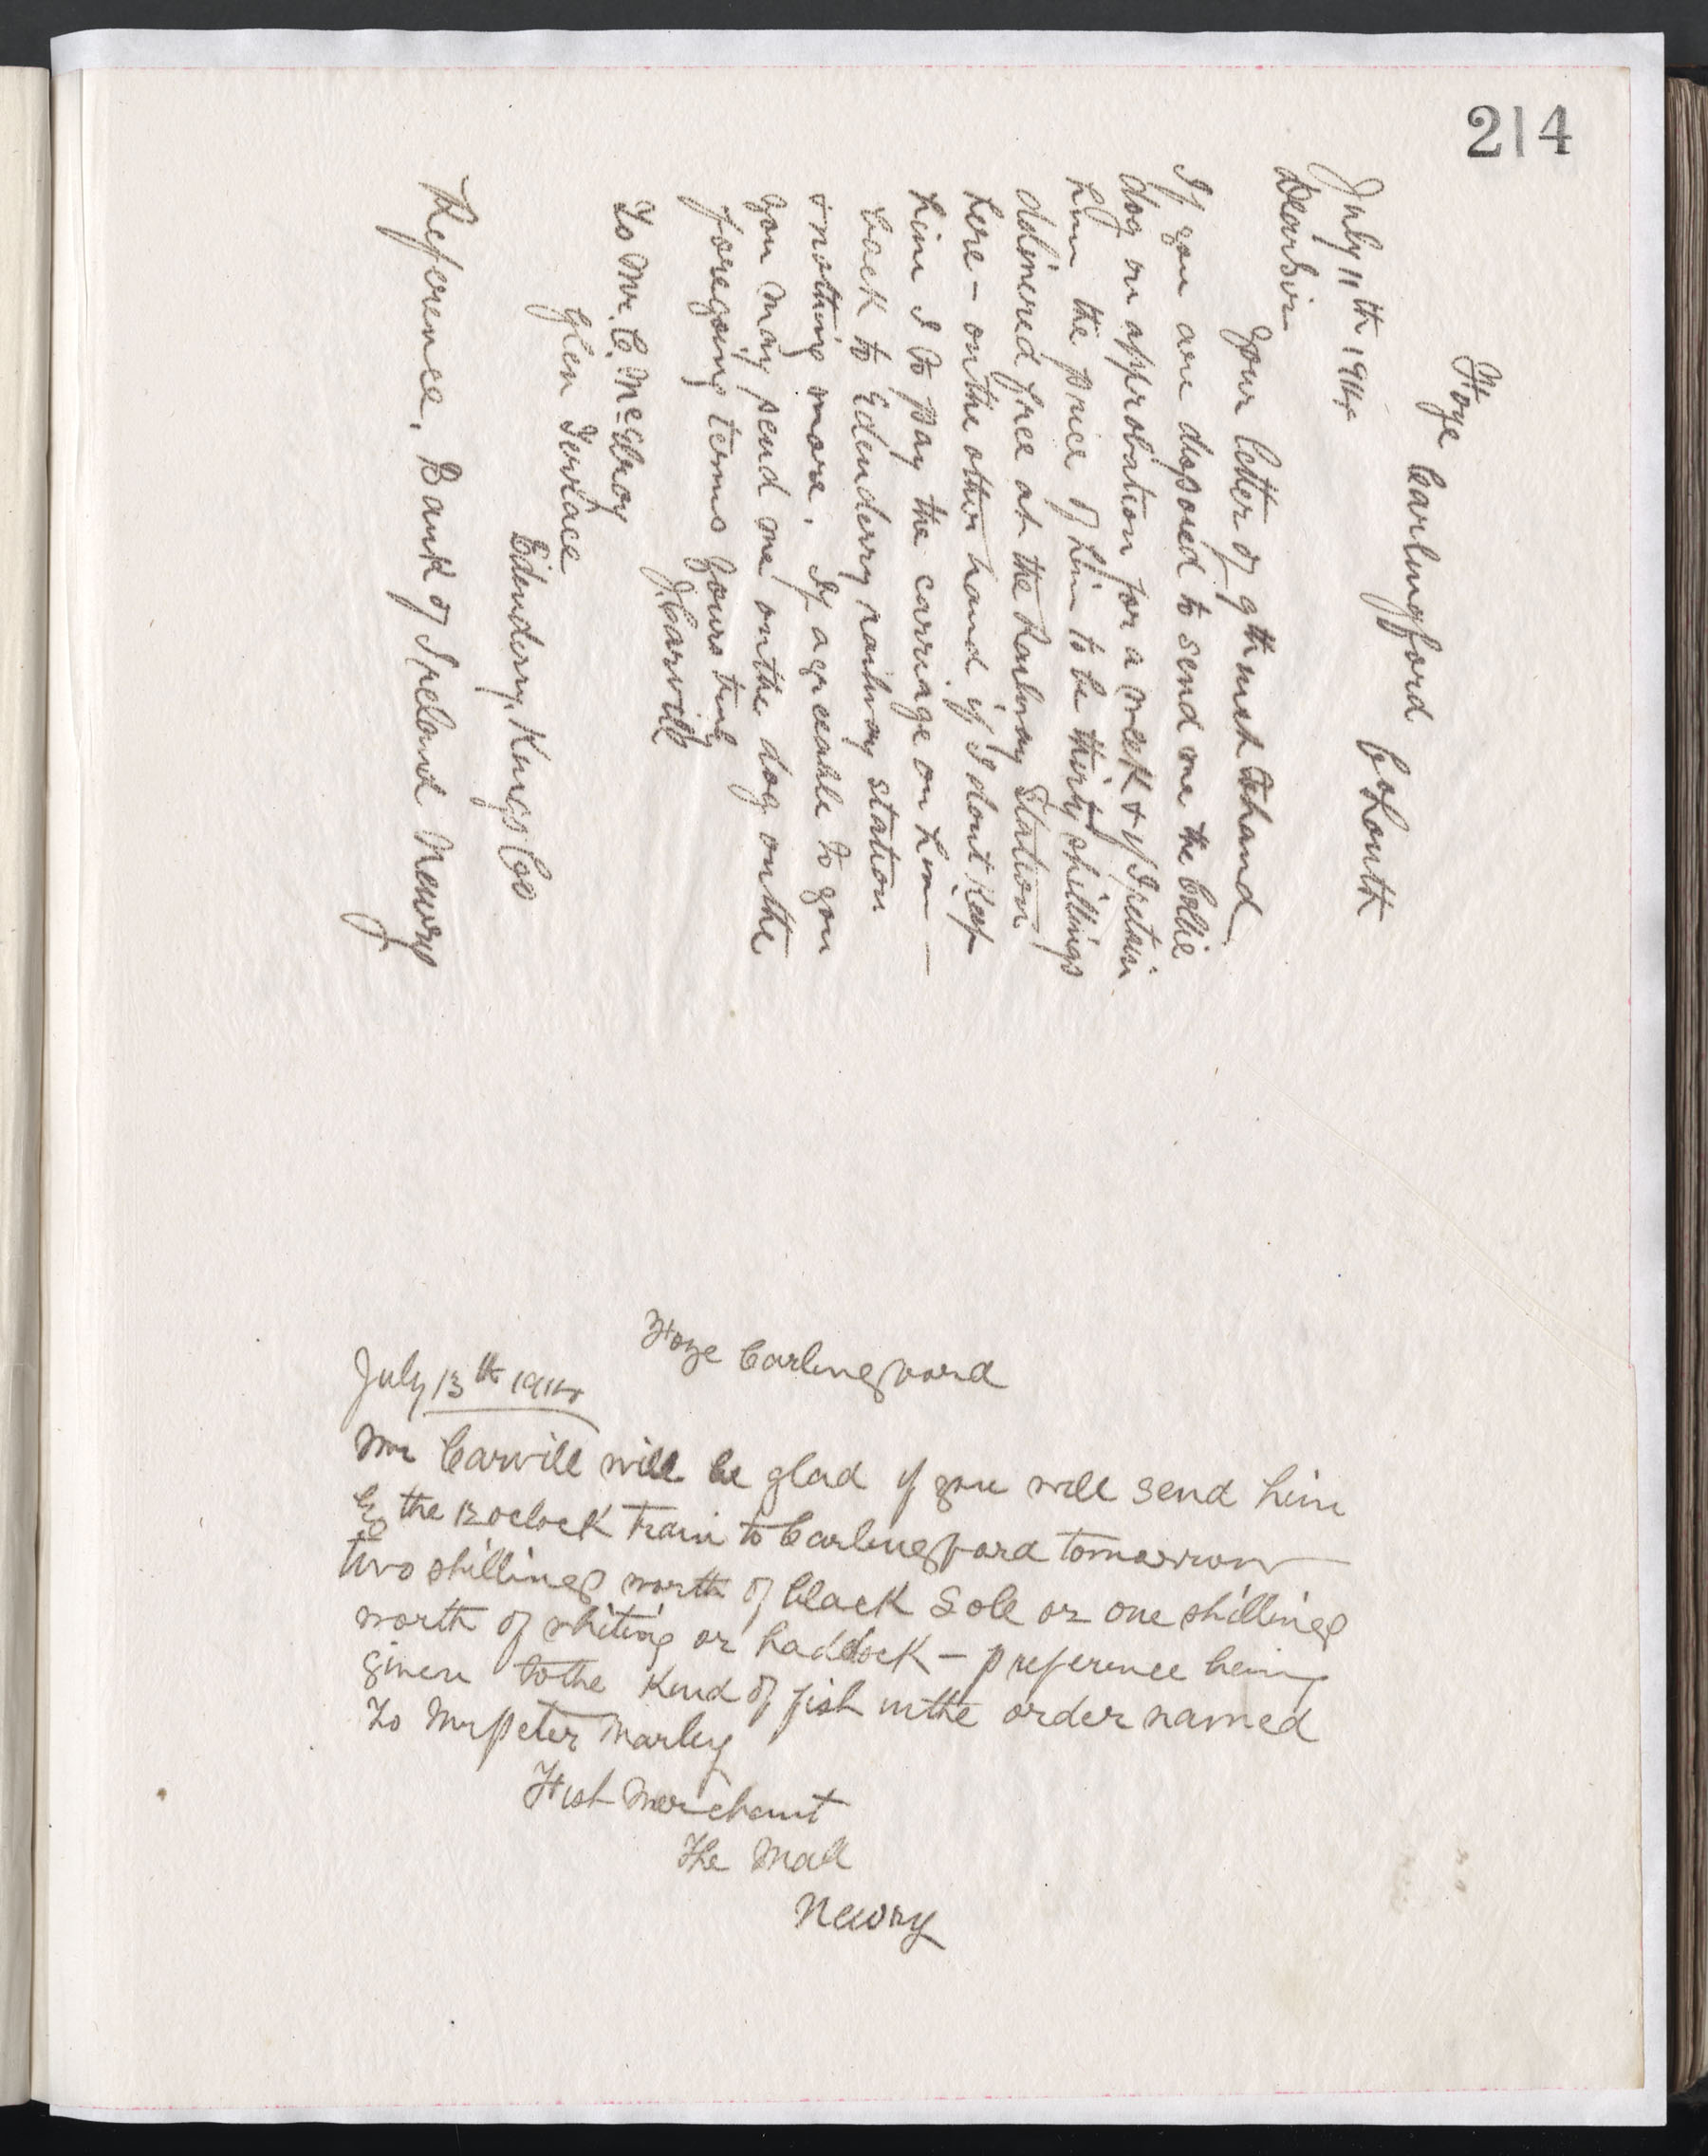 214
Foye Carlingford Co Louth
July 11th 1914
Dear Sir
Your letter of 9th inst to hand
If you are disposed to send me the Collie
dog on approbation for a week & if I retain
him the price of him to be thirty shillings
delivered free at the Railway Station
here - on the other hand if I dont keep
him I to pay the carriage on him -
back to Edenderry railway station
& nothing more. If agreeable to you
you may send me on the dog on the
foregoing terms Yours truly
J. Carvill
To Mr. C. McElroy
Glen Terrace
Edenderry, Kings Co
Reference, Bank of Ireland Newry
Foye Carlingford
July 13th 1914
Mr Carvill will be glad if you will send him
by the 12 oclock train to Carlingford tomorrow
two shillings worth of black Sole or one shillings
worth of whiting or haddock - preference being
given to the kind of fish in the order named
To Mr Peter Marley
Fish Merchant
The Mall
Newry